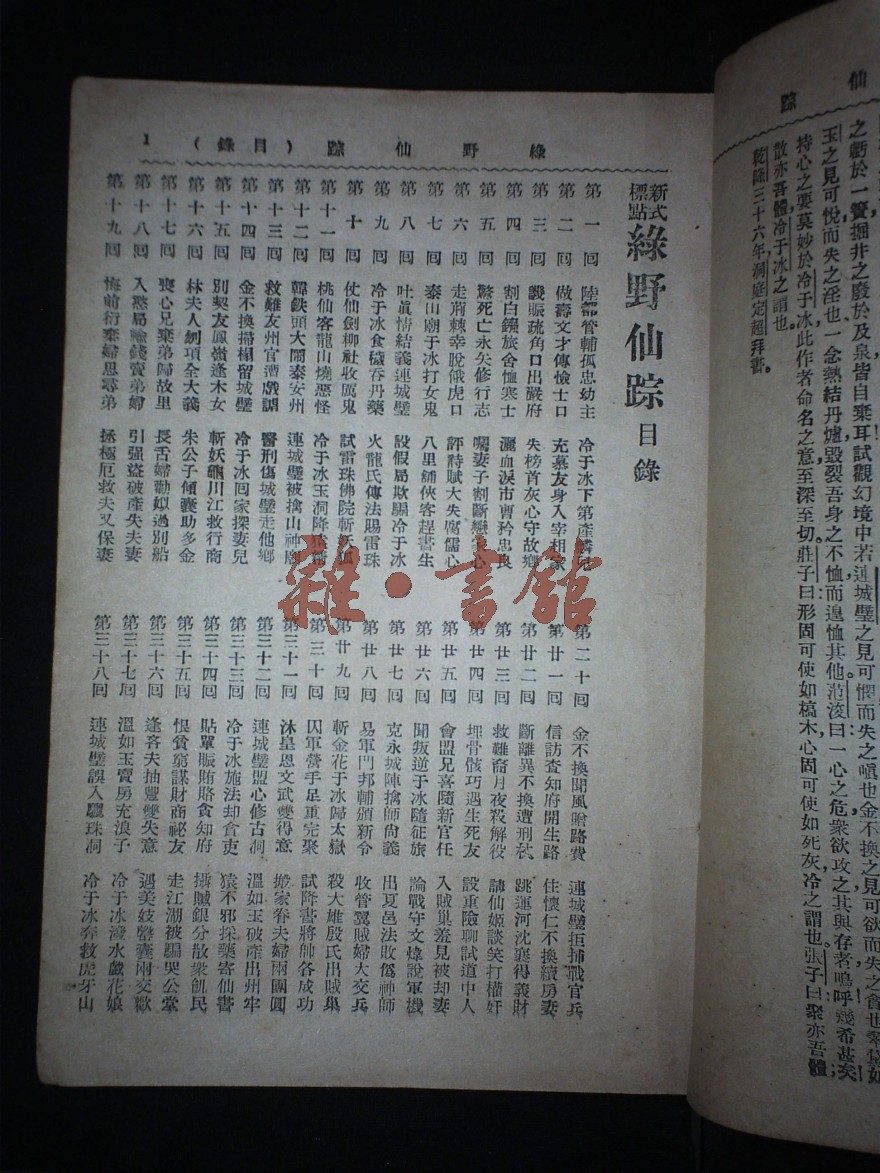 仙踪
之虧於一簣掘井之廢於及泉皆自棄耳試觀幻境中若連城璧之見可懼而失之嗔也金不換之見可欲而失之貪也翠黛如
玉之見可悅而失之淫也一念熱結丹爐毀裂吾身之不恤而遑恤其他范浚曰一心之危衆欲攻之其與存者嗚呼幾希甚矣；
持心之要莫妙於冷于冰此作者命名之意至深至切莊子曰形固可使如槁木心固可使如死灰冷之謂也張子曰聚亦吾體
散亦吾體冷于冰之謂也。
乾隆三十六年洞庭定超拜書。
綠野仙踪（目錄） 1
新式標點 綠野仙踪目錄
第一回 陸都管輔孤忠幼主 冷于冰下第產麟兒
第二回 做壽文才傳憸士口 充幕友身入宰相家
第三回 議賑疏角口出嚴府 失榜首灰心守故鄉
第四回 割白鏹旅舍恤寒士 灑血淚市曹矜忠良
第五回 驚死亡永矢修行志 囑妻子割斷戀家心
第六回 走荊棘幸脫餓虎口 評詩賦大失腐儒心
第七回 泰山廟于冰打女鬼 八里舖俠客趕書生
第八回 吐眞情結義連城璧 設假局欺騙冷于冰
第九回 冷于冰食穢吞丹藥 火龍氏傳法賜雷珠
第十回 仗仙劍柳社收厲鬼 試雷珠佛院斬妖狐
第十一回 桃仙客龍山燒惡怪 冷于冰玉洞降猿精
第十二回 韓鉄頭大鬧泰安州 連城璧被擒山神廟
第十三回 救難友州官遭戲謔 醫刑傷城璧走他鄉
第十四回 金不換掃榻留城璧 冷于冰回家探妻兒
第十五回 別契友鳳嶺逢木女 斬妖黿川江救行商
第十六回 林夫人刎項全大義 朱公子傾囊助多金
第十七回 喪心兄棄弟歸故里 長舌婦勸姒過別船
第十八回 入憨局輸錢賣弟婦 引强盜破產失夫妻
第十九回 悔前衍棄婦思尋弟 拯極厄救夫又保妻
第二十回 金不換聞風贈路費 連城璧拒捕戰官兵
第廿一回 信訪查知府開生路 住懷仁不換續房妻
第廿二回 斷離異不換遭刑杖 跳運河沈襄得義財
第廿三回 救難裔月夜殺解役 請仙姬談笑打權奸
第廿四回 埋骨骸巧遇生死友 設重險聊試道中人
第廿五回 會盟兄喜隨新官任 入賊巢羞見被刼妻
第廿六回 聞叛逆于冰隨征旅 論戰守文煒說軍機
第廿七回 克永城陣擒師尚義 出夏邑法敗僞神師
第廿八回 易軍門邦輔頒新令 收管翼賊婦大交兵
第廿九回 斬金花于冰歸太嶽 殺大雄殷氏出賊巢
第三十回 囚軍營手足重完聚 試降書將帥各成功
第三十一回 沐皇恩文武雙得意 搬家眷夫婦兩團圓
第三十二回 連城璧盟心修古洞 溫如玉破產出州牢
第三十三回 冷于冰施法却貪吏 猿不邪採藥寄仙書
第三十四回 貼單賑賄賂貪知府 攝贓銀分散衆飢民
第三十五回 恨貧窮謀財商祕友 走江湖被騙哭公堂
第三十六回 逢客夫抽豐雙失意 遇美妓罄囊兩交歡
第三十七回 溫如玉賣房充浪子 冷于冰潑水戲花娘
第三十八回 連城璧誤入驪珠洞 冷于冰奔救虎牙山
雜·書館